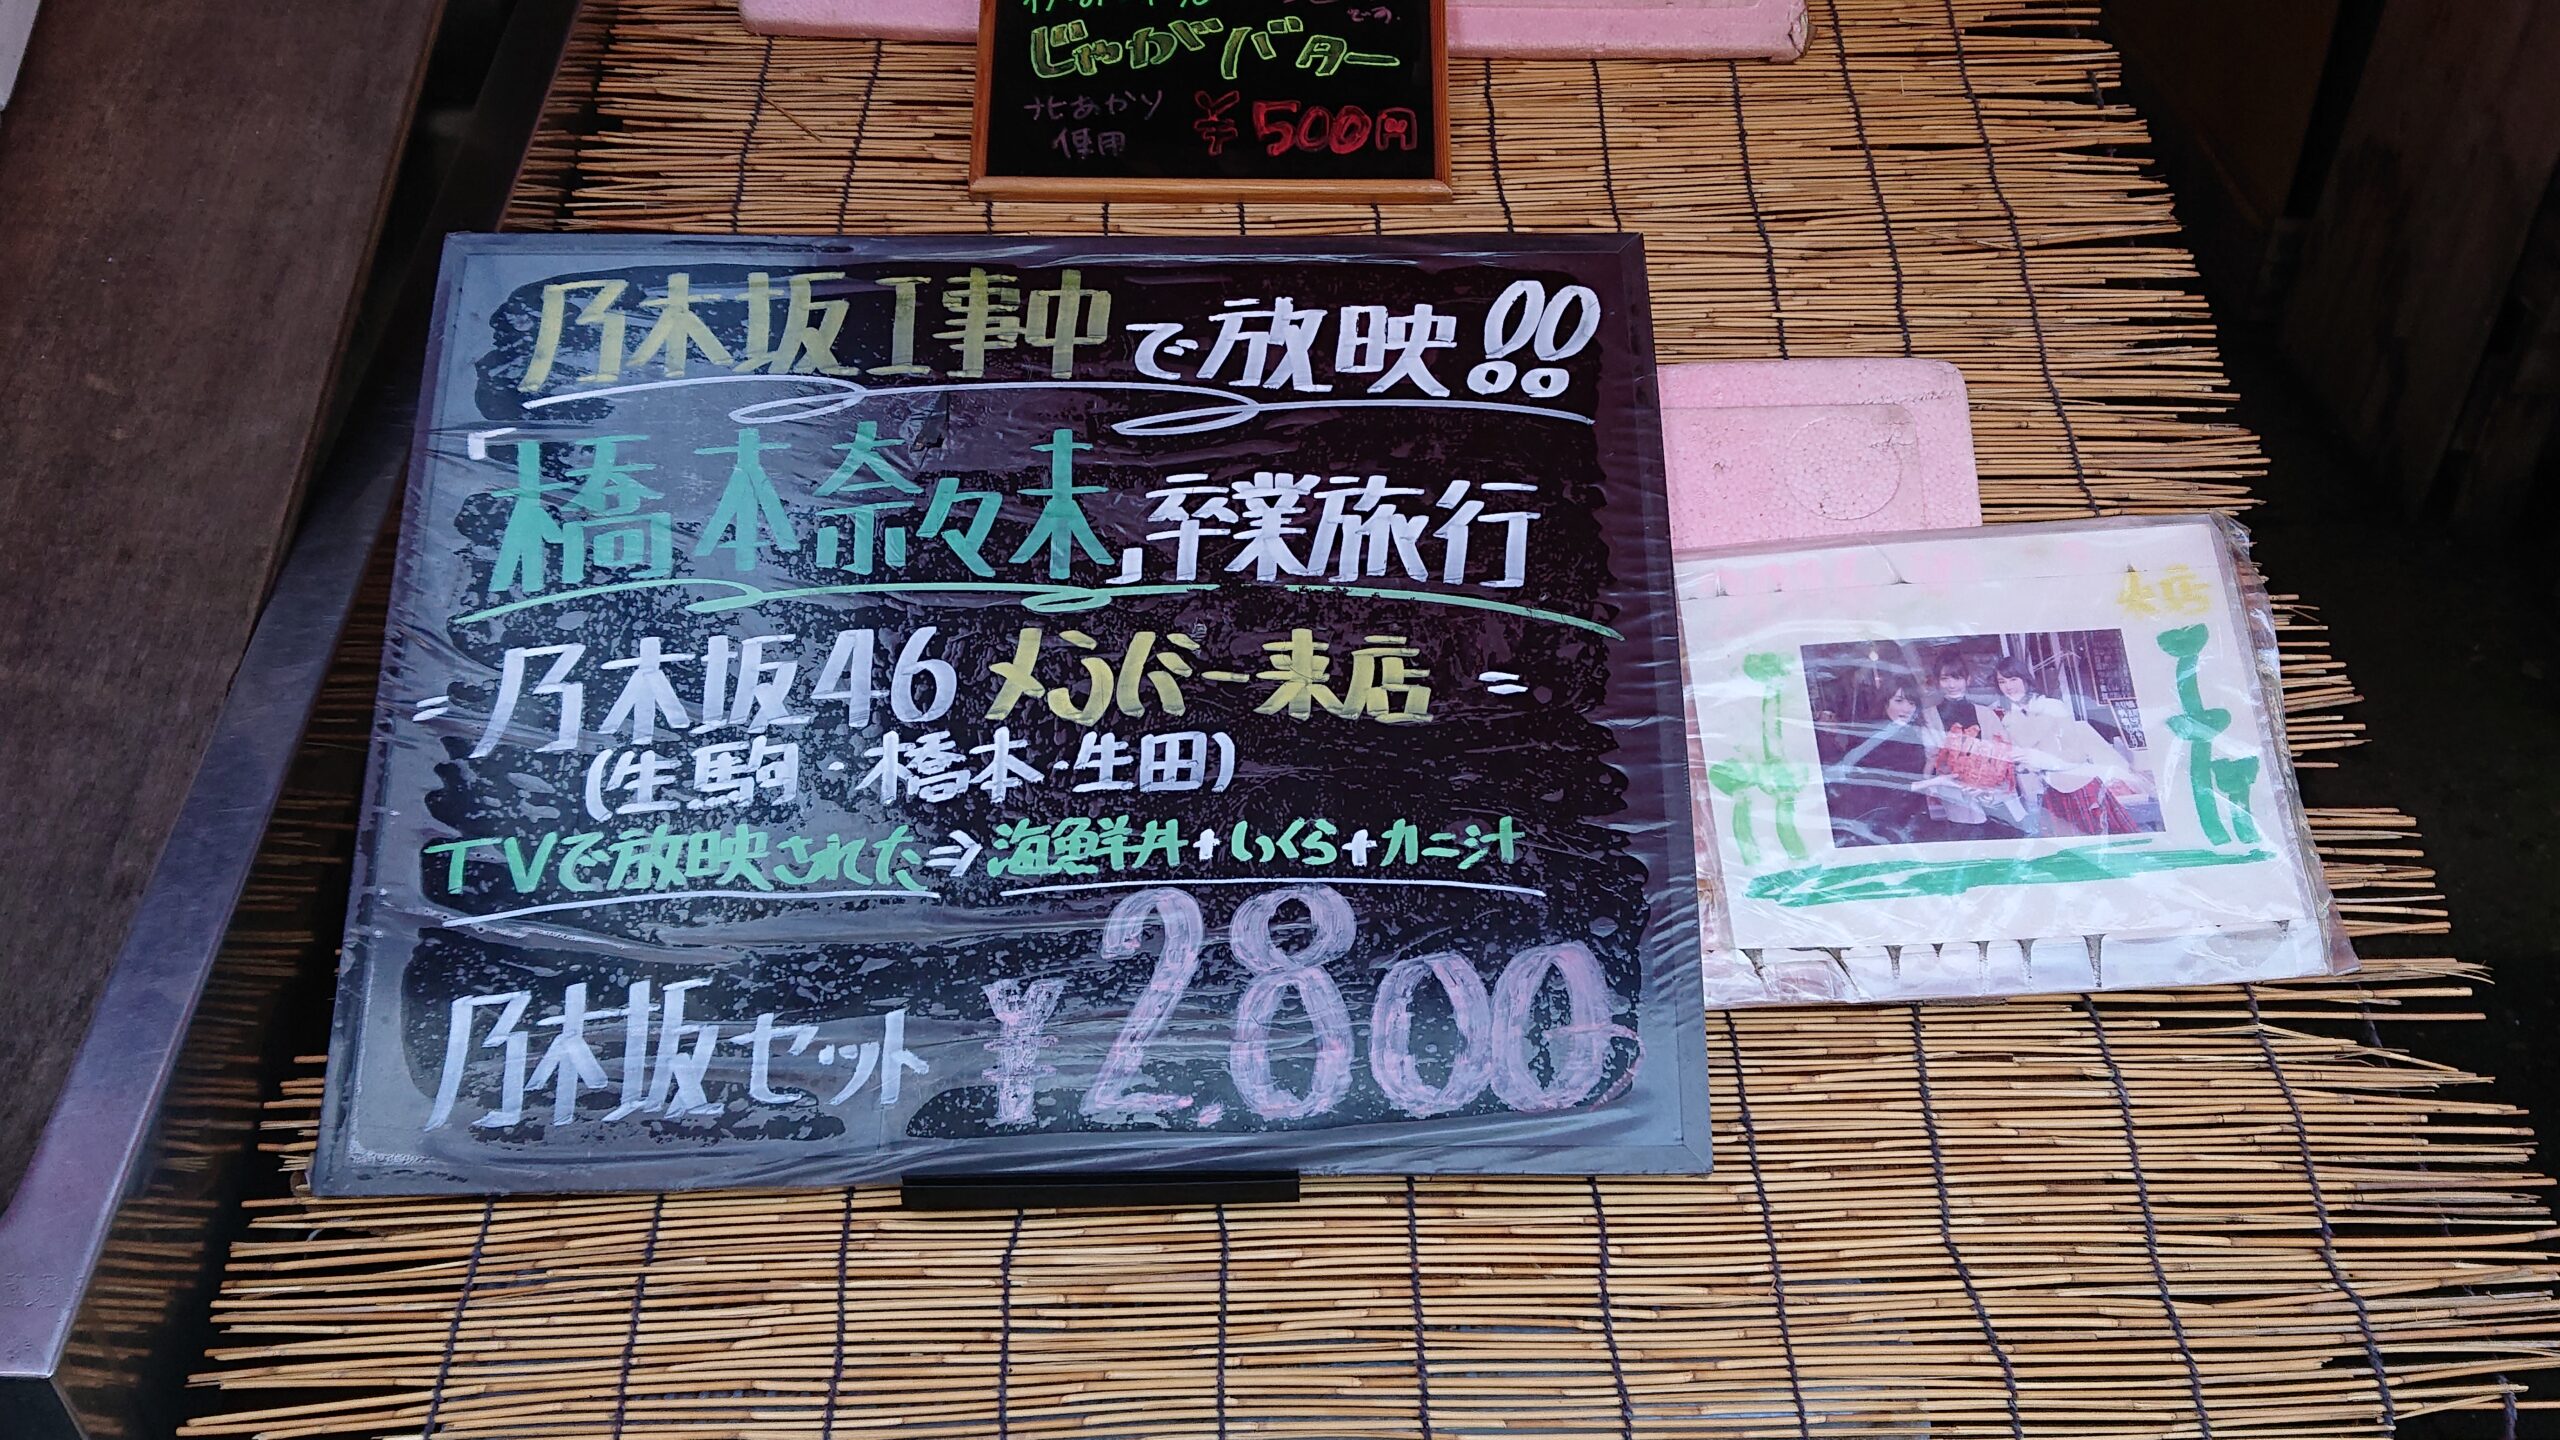 じゃがバター
北あかり
使用
¥500円
乃木坂工事中で放映!!
「橋本奈々未」卒業旅行
=乃木坂46メンバー来店=
(生駒・橋本・生田)
TVで放映された⇒海鮮丼+いくら+カニ汁
乃木坂セット ¥2.800
来店